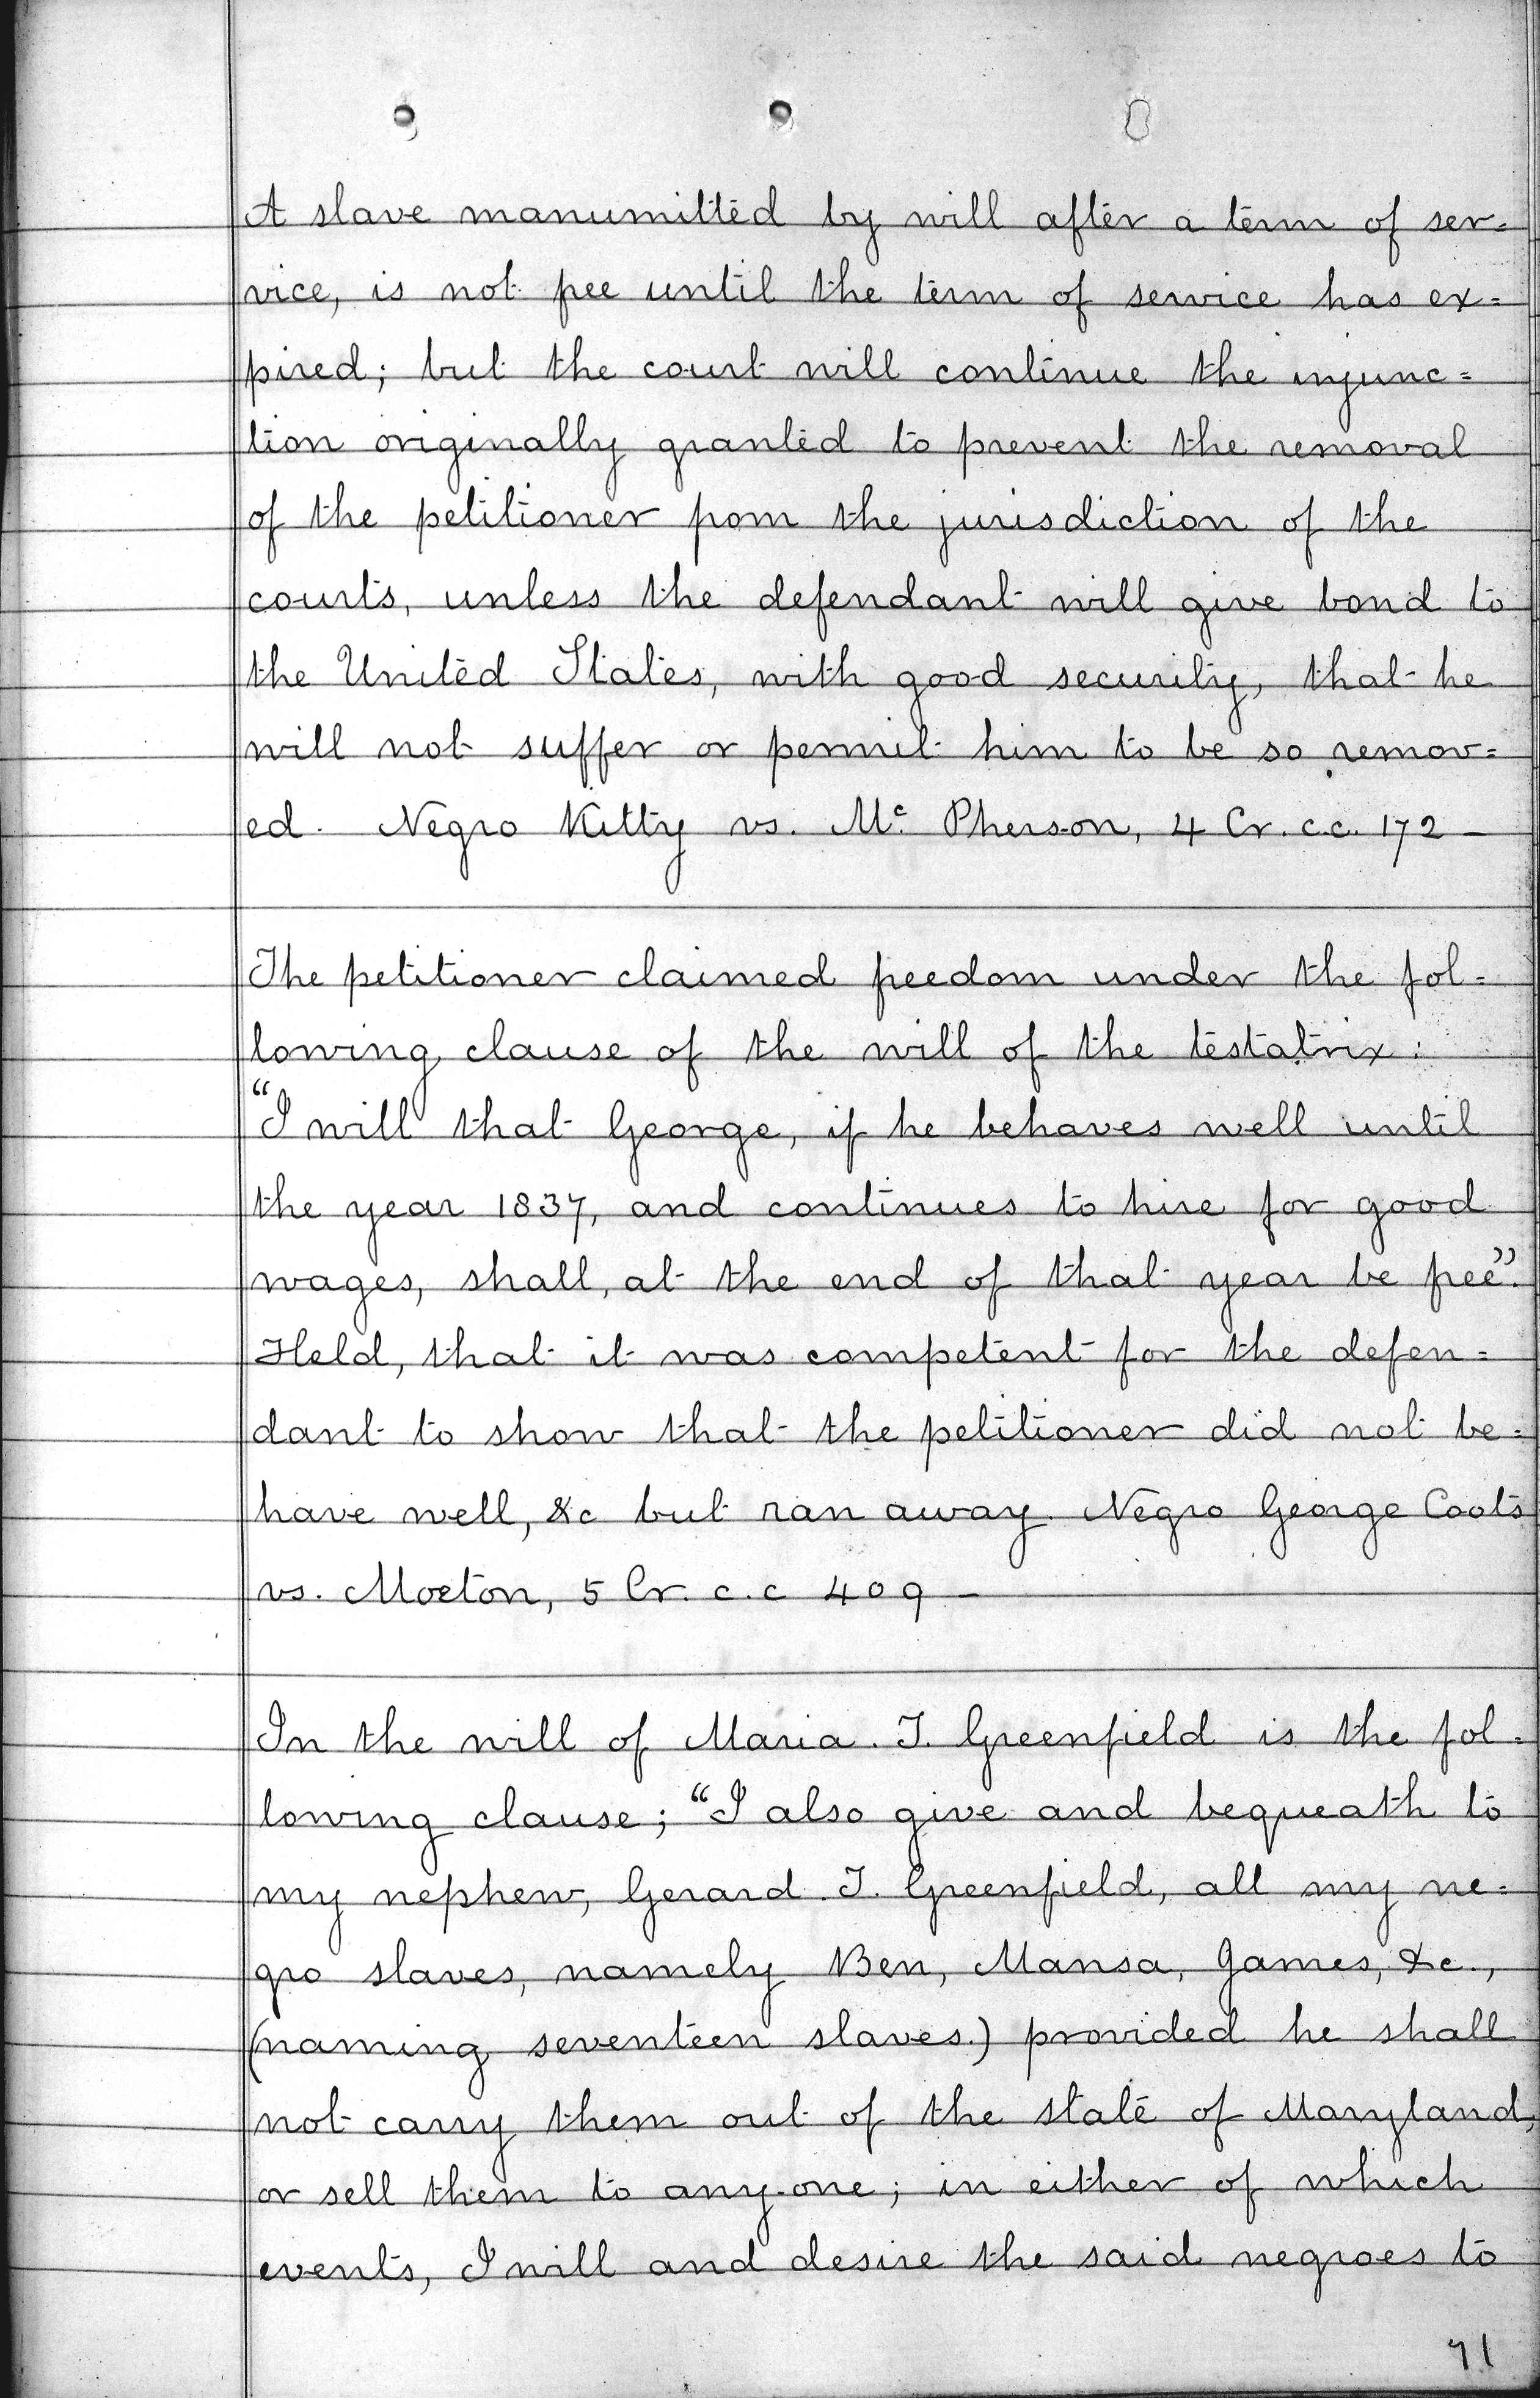 A slave manumitted by will after a term of ser=
vice, is not free until the term of service has ex=
pired; but the court will continue the injunc=
tion originally granted to prevent the removal
of the petitioner from the jurisdiction of the
courts, unless the defendant will give bond to
the United States, with good security, that he
will not suffer or permit him to be so remov=
ed. Negro Kitty vs. Mc. Pherson, 4 Cr. c.c. 172 -
The petitioner claimed freedom under the fol=
lowing clause of the will of the testatrix:
"I will that George, if he behaves well until
the year 1837, and continues to hire for good
wages, shall, at the end of that year be free".
Held, that it was competent for the defen=
dant to show that the petitioner did not be=
have well, &c but ran away. Negro George Coots
vs. Morton, 5 Cr. c.c 409 -
In the will of Maria. T. Greenfield is the fol=
lowing clause; "I also give and bequeath to
my nephew, Gerard. T. Greenfield, all my ne=
gro slaves, namely Ben, Mansa, James, &c.,
(naming seventeen slaves.) provided he shall
not carry them out of the state of Maryland,
or sell them to any-one; in either of which
events, I will and desire the said negroes to
71